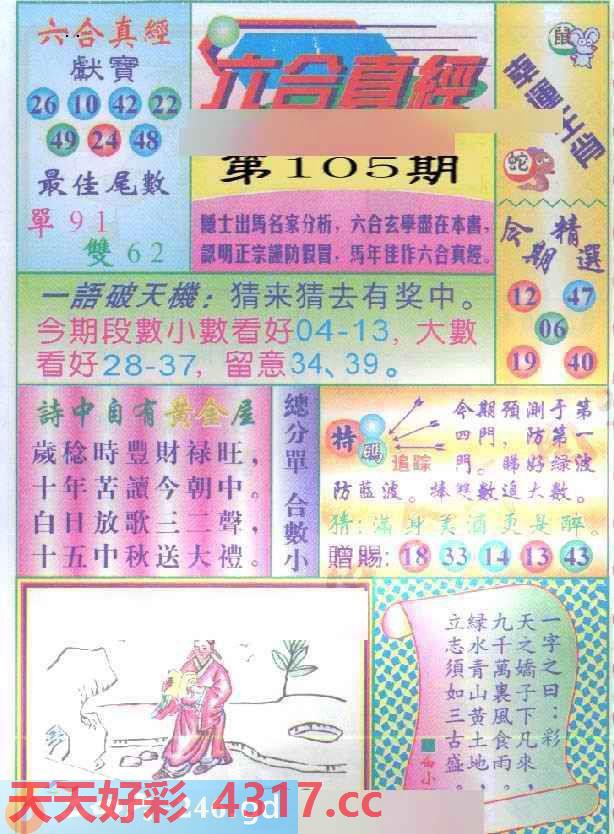 六合真經
獻寶
26 10 42 22
49 24 48
最佳尾數
單 9 1
雙 6 2
六合真經
第105期
隱士出馬名家分析，六合玄學盡在本書，
認明正宗謹防假冒，馬年佳作六合真經。
鼠
幸運生肖
蛇
今期精選
12 47
06
19 40
一語破天機：猜来猜去有奖中。
今期段數小數看好04-13，大數
看好28-37，留意34、39。
詩中自有黃金屋
歲稔時豐財祿旺，
十年苦讀今朝中。
白日放歌三二聲，
十五中秋送大禮。
總分單 合數小
特碼追踪
今期預測于第
四門，防第一
門。睇好綠波
防藍波。捧雙數追大數。
猜：滿身美酒更是醉。
贈賜：18 33 14 13 43
一字之曰：彩
天之嬌子下凡來，
九千萬裏風食雨。
綠水青山黃土地，
立志須如三古盛。
天天好彩 4317.cc
246.gd